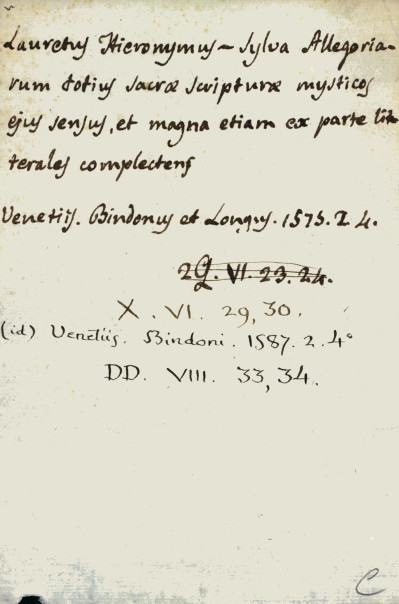 Lauretus Hieronymus – Sylva Allegoria-
rum totius sacræ scripturæ mysticos
ejus sensus, et magna etiam ex parte lit-
terales complectens
Venetiis. Bindonus et Longus. 1575. 2. 4.
29. VI. 23. 24.
X. VI. 29, 30.
(id) Venetiis. Bindoni. 1587. 2. 4°
DD. VIII. 33, 34.
C